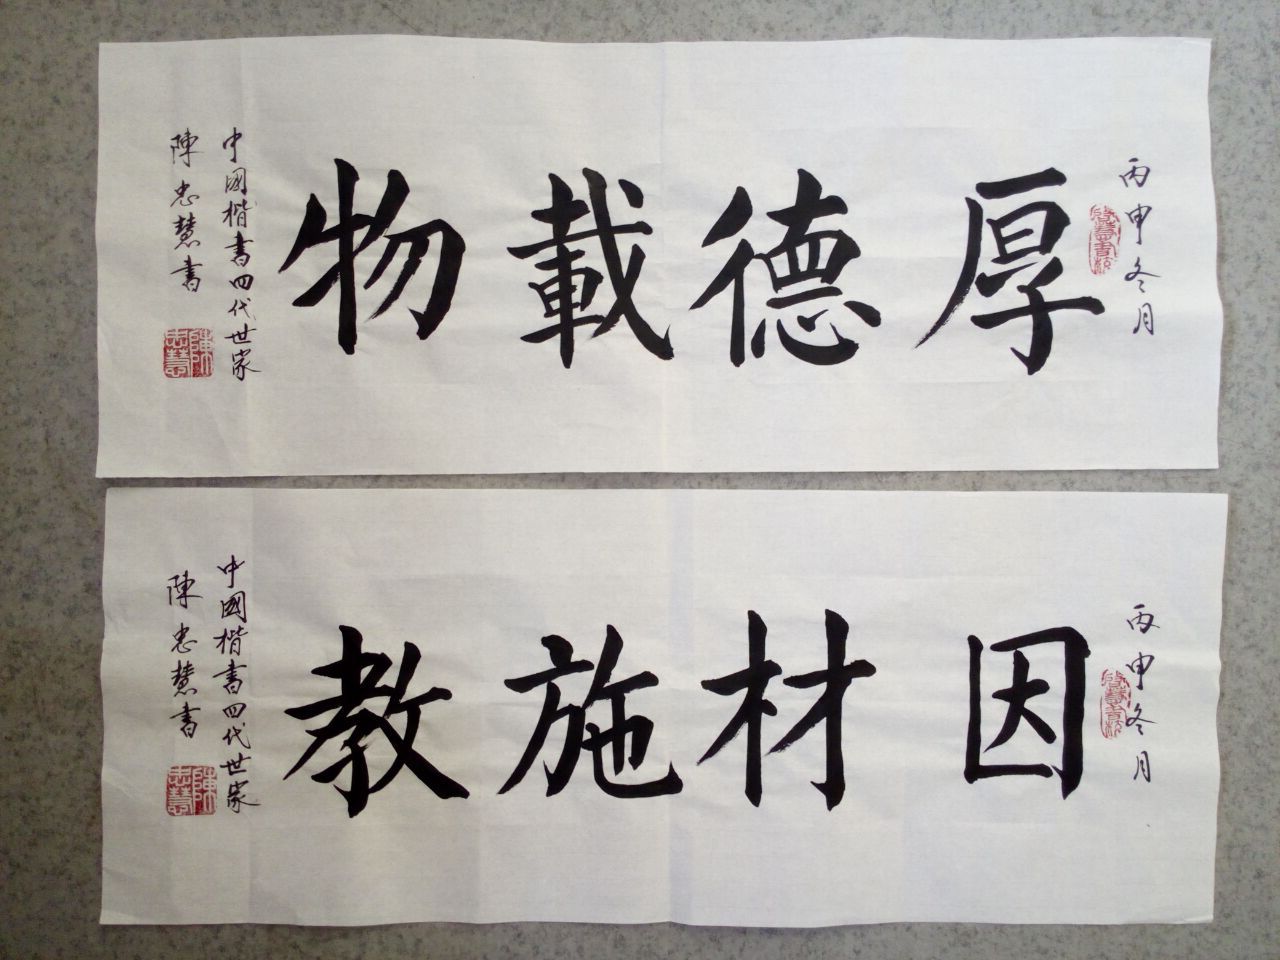 丙申冬月
厚德載物
中國楷書四代世家
陳忠慧書
陳忠慧
丙申冬月
因材施教
中國楷書四代世家
陳忠慧書
陳忠慧